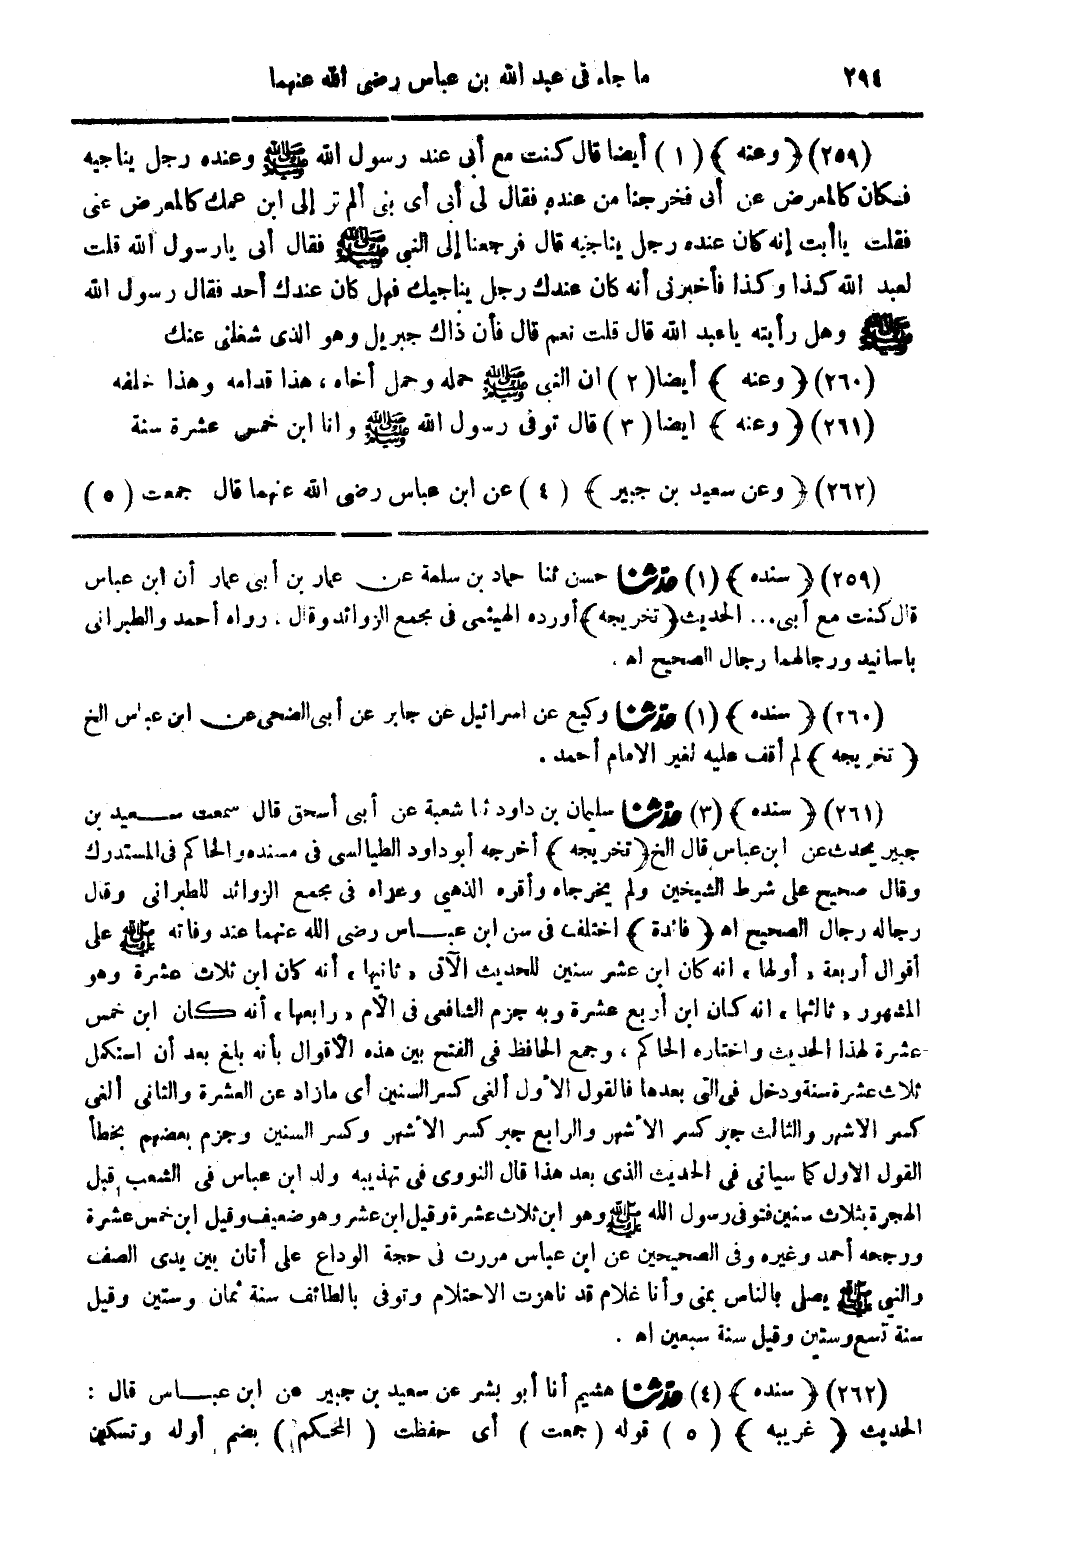 ٢٩٤ ما جاء فى عبد الله بن عباس رضى الله عنهما
(٢٥٩) ﴿ وعنه ﴾ (١) أيضا قال كنت مع أبى عند رسول الله ﷺ وعنده رجل يناجيه
فكان كالمعرض عن أبى فخرجنا من عنده فقال لى أبى أى بنى ألم تر إلى ابن عمك كالمعرض عنى
فقلت ياأبت إنه كان عنده رجل يناجيه قال فرجعنا إلى النبى ﷺ فقال أبى يارسول الله قلت
لعبد الله كذا وكذا فأخبرنى أنه كان عندك رجل يناجيك فهل كان عندك أحد فقال رسول الله
ﷺ وهل رأيته ياعبد الله قال قلت نعم قال فأن ذاك جبريل وهو الذى شغلنى عنك
(٢٦٠) ﴿ وعنه ﴾ أيضا (٢) ان النبى ﷺ حمله وحمل أخاه ، هذا قدامه وهذا خلفه
(٢٦١) ﴿ وعنه ﴾ ايضا (٣) قال توفى رسول الله ﷺ وانا ابن خمس عشرة سنة
(٢٦٢) ﴿ وعن سعيد بن جبير ﴾ (٤) عن ابن عباس رضى الله عنهما قال جمعت (٥)
(٢٥٩) ﴿ سنده ﴾ (١) حدثنا حسن ثنا حماد بن سلمة عن عمار بن أبى عمار أن ابن عباس
قال كنت مع أبى... الحديث ﴿ تخريجه ﴾ أورده الهيثمى فى مجمع الزوائد وقال . رواه أحمد والطبرانى
باسانيد ورجالهما رجال الصحيح اه .
(٢٦٠) ﴿ سنده ﴾ (١) حدثنا وكيع عن اسرائيل عن جابر عن أبى الضحى عن ابن عباس الخ
﴿ تخريجه ﴾ لم أقف عليه لغير الامام أحمد .
(٢٦١) ﴿ سنده ﴾ (٣) حدثنا سليمان بن داود ثنا شعبة عن أبى أسحق قال سمعت سعيد بن
جبير يحدث عن ابن عباس قال الخ ﴿ تخريجه ﴾ أخرجه أبو داود الطيالسى فى مسنده والحاكم فى المستدرك
وقال صحيح على شرط الشيخين ولم يخرجاه وأقره الذهبى وعزاه فى مجمع الزوائد للطبرانى وقال
رجاله رجال الصحيح اه ﴿ فائدة ﴾ اختلف فى سن ابن عباس رضى الله عنهما عند وفاته ﷺ على
أقوال أربعة « أولها » انه كان ابن عشر سنين للحديث الآتى « ثانيها » أنه كان ابن ثلاث عشرة وهو
المشهور « ثالثها » انه كان ابن أربع عشرة وبه جزم الشافعى فى الأم « رابعها » أنه كان ابن خمس
عشرة لهذا الحديث واختاره الحاكم ، وجمع الحافظ فى الفتح بين هذه الأقوال بأنه بلغ بعد أن استكمل
ثلاث عشرة سنة ودخل فى التى بعدها فالقول الأول ألغى كسر السنين أى مازاد عن العشرة والثانى ألغى
كسر الاشهر والثالث جبر كسر الأشهر والرابع جبر كسر الأشهر وكسر السنين وجزم بعضهم بخطأ
القول الاول كما سيأتى فى الحديث الذى بعد هذا قال النووى فى تهذيبه ولد ابن عباس فى الشعب قبل
الهجرة بثلاث سنين فتوفى رسول الله ﷺ وهو ابن ثلاث عشرة وقيل ابن عشر وهو ضعيف وقيل ابن خمس عشرة
ورجحه أحمد وغيره وفى الصحيحين عن ابن عباس مررت فى حجة الوداع على أتان بين يدى الصف
والنبى ﷺ يصلى بالناس بمنى وأنا غلام قد ناهزت الاحتلام وتوفى بالطائف سنة ثمان وستين وقيل
سنة تسع وستين وقيل سنة سبعين اه .
(٢٦٢) ﴿ سنده ﴾ (٤) حدثنا هشيم أنا أبو بشر عن سعيد بن جبير عن ابن عباس قال :
الحديث ﴿ غريبه ﴾ (٥) قوله (جمعت) أى حفظت (المحكم) بضم أوله وتسكين